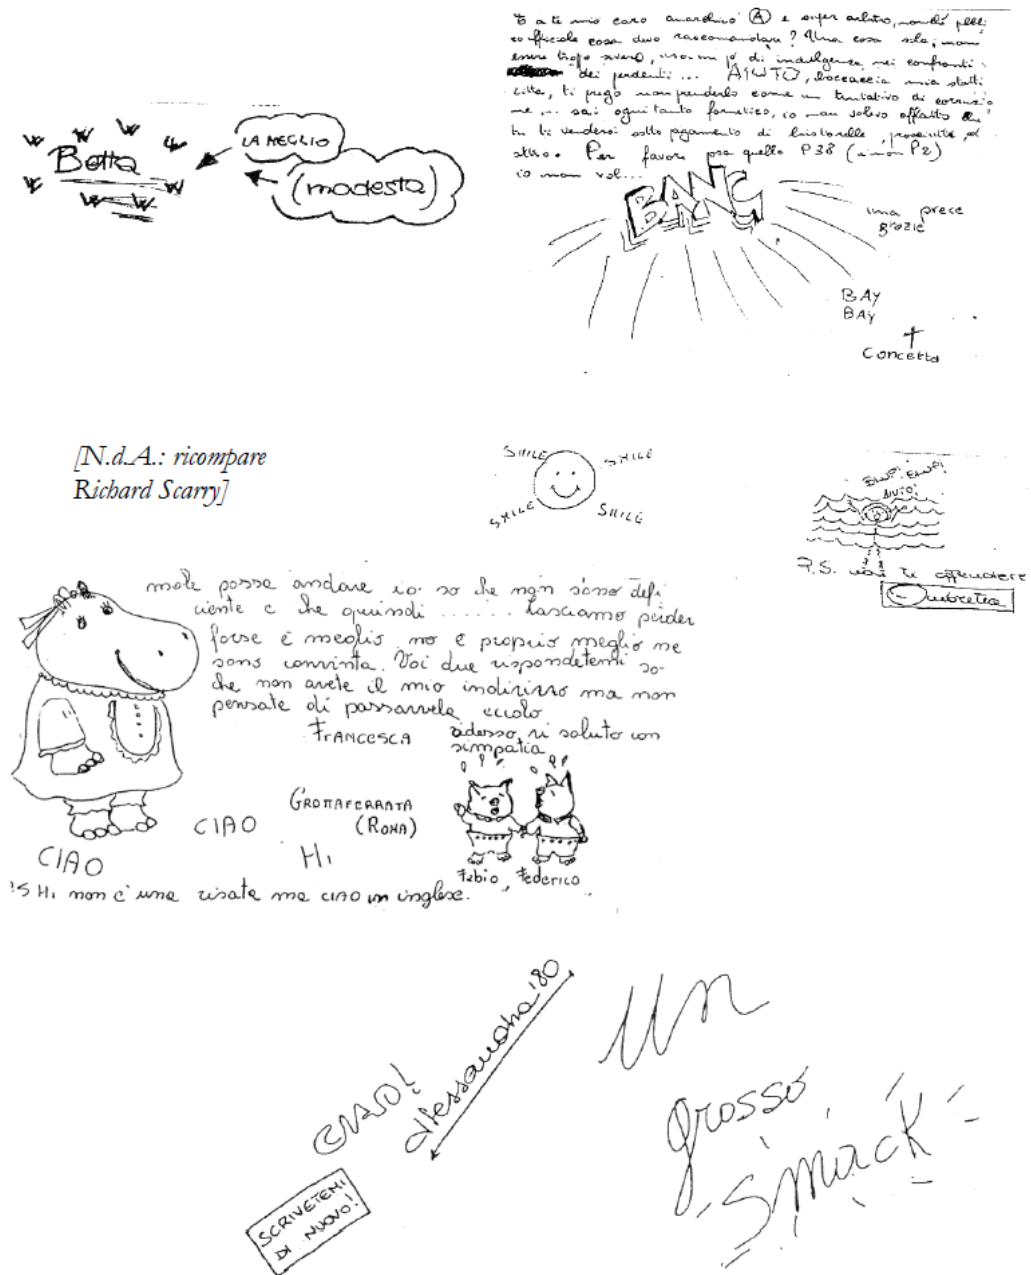 W W W W
Betta
W W W W W
LA MEGLIO
(modesta)
E a te mio caro anarchico Ⓐ e super arbitro, nonché
ufficiale cosa devo raccomandare? Una cosa sola, non
essere troppo severo, usa un po' di indulgenza nei confronti
dei perdenti ... AIUTO, boccaccia mia statti
zitta, ti prego non prenderlo come un tentativo di corruzio
ne ... sai ogni tanto farnetico, io non volevo affatto che
tu ti vendessi sotto pagamento di prosciutto, ed
altro. Per favore posa quella P38 (non P2)
io non vol...
BANG
una prece
grazie
BAY
BAY
Concetta
[N.d.A.: ricompare
Richard Scarry]
SMILE SMILE
SMILE SMILE
AIUTO!
P.S. non te offendere
Ombretta
male possa andare io so che non sono defi
ciente e che quindi ...... lasciamo perder
forse è meglio, no è proprio meglio ne
sono convinta. Voi due rispondetemi so
che non avete il mio indirizzo ma non
pensate di passarvela eccolo
FRANCESCA
adesso vi saluto con
simpatia
GROTTAFERRATA
(ROMA)
CIAO
CIAO
Hi
Fabio, Federico
'S Hi non è una risata ma CIAO in inglese.
CIAO!
Alessandra '80
SCRIVETEMI
DI NUOVO!
Un
grosso
SMACK